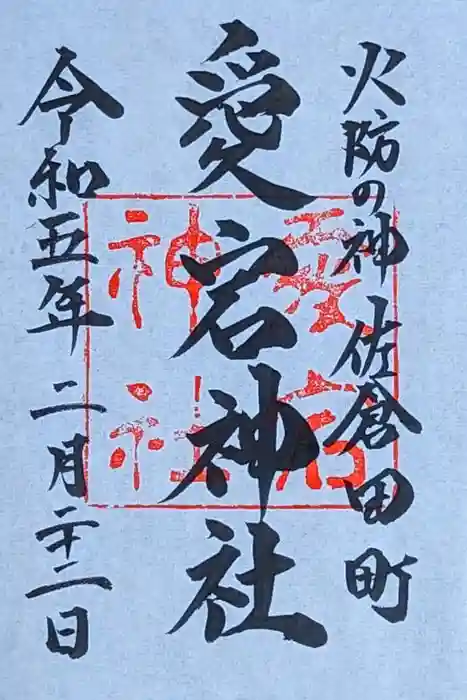 火防の神 佐倉田町
愛宕神社
令和五年 二月二十二日
愛宕
神社